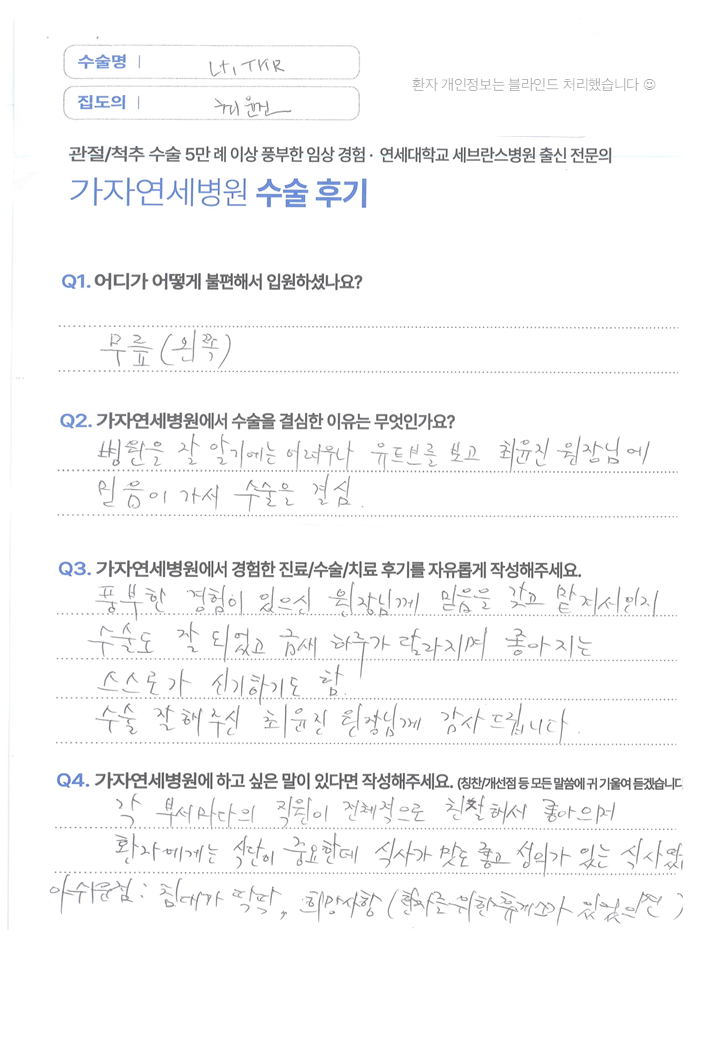 수술명 | Lt, TKR
환자 개인정보는 블라인드 처리했습니다 ☺
집도의 | 최윤진
관절/척추 수술 5만 례 이상 풍부한 임상 경험 · 연세대학교 세브란스병원 출신 전문의
가자연세병원 수술 후기
Q1. 어디가 어떻게 불편해서 입원하셨나요?
무릎 (왼쪽)
Q2. 가자연세병원에서 수술을 결심한 이유는 무엇인가요?
병원을 잘 알기에는 어려우나 유트브를 보고 최윤진 원장님에
믿음이 가서 수술을 결심.
Q3. 가자연세병원에서 경험한 진료/수술/치료 후기를 자유롭게 작성해주세요.
풍부한 경험이 있으신 원장님께 믿음을 갖고 맡겨서인지
수술도 잘 되었고 금새 하루가 달라지며 좋아지는
스스로가 신기하기도 함.
수술 잘해주신 최윤진 원장님께 감사드립니다.
Q4. 가자연세병원에 하고 싶은 말이 있다면 작성해주세요. (칭찬/개선점 등 모든 말씀에 귀 기울여 듣겠습니다
각 부서마다의 직원이 전체적으로 친절해서 좋아으며
환자에게는 식단이 중요한데 식사가 맛도 좋고 성의가 있는 식사였
아쉬운점: 침대가 딱딱, 희망사항 (환자를 위한 휴게소가 있었으면)